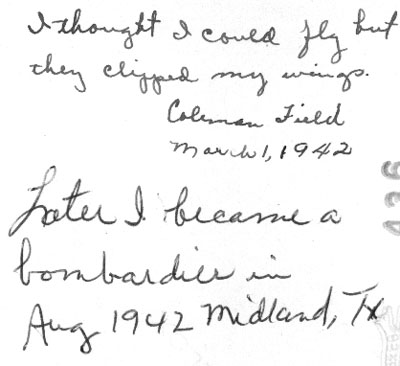 I thought I could fly but
they clipped my wings.
Coleman Field
March 1, 1942
Later I became a
bombardier in
Aug 1942 Midland, Tx
436